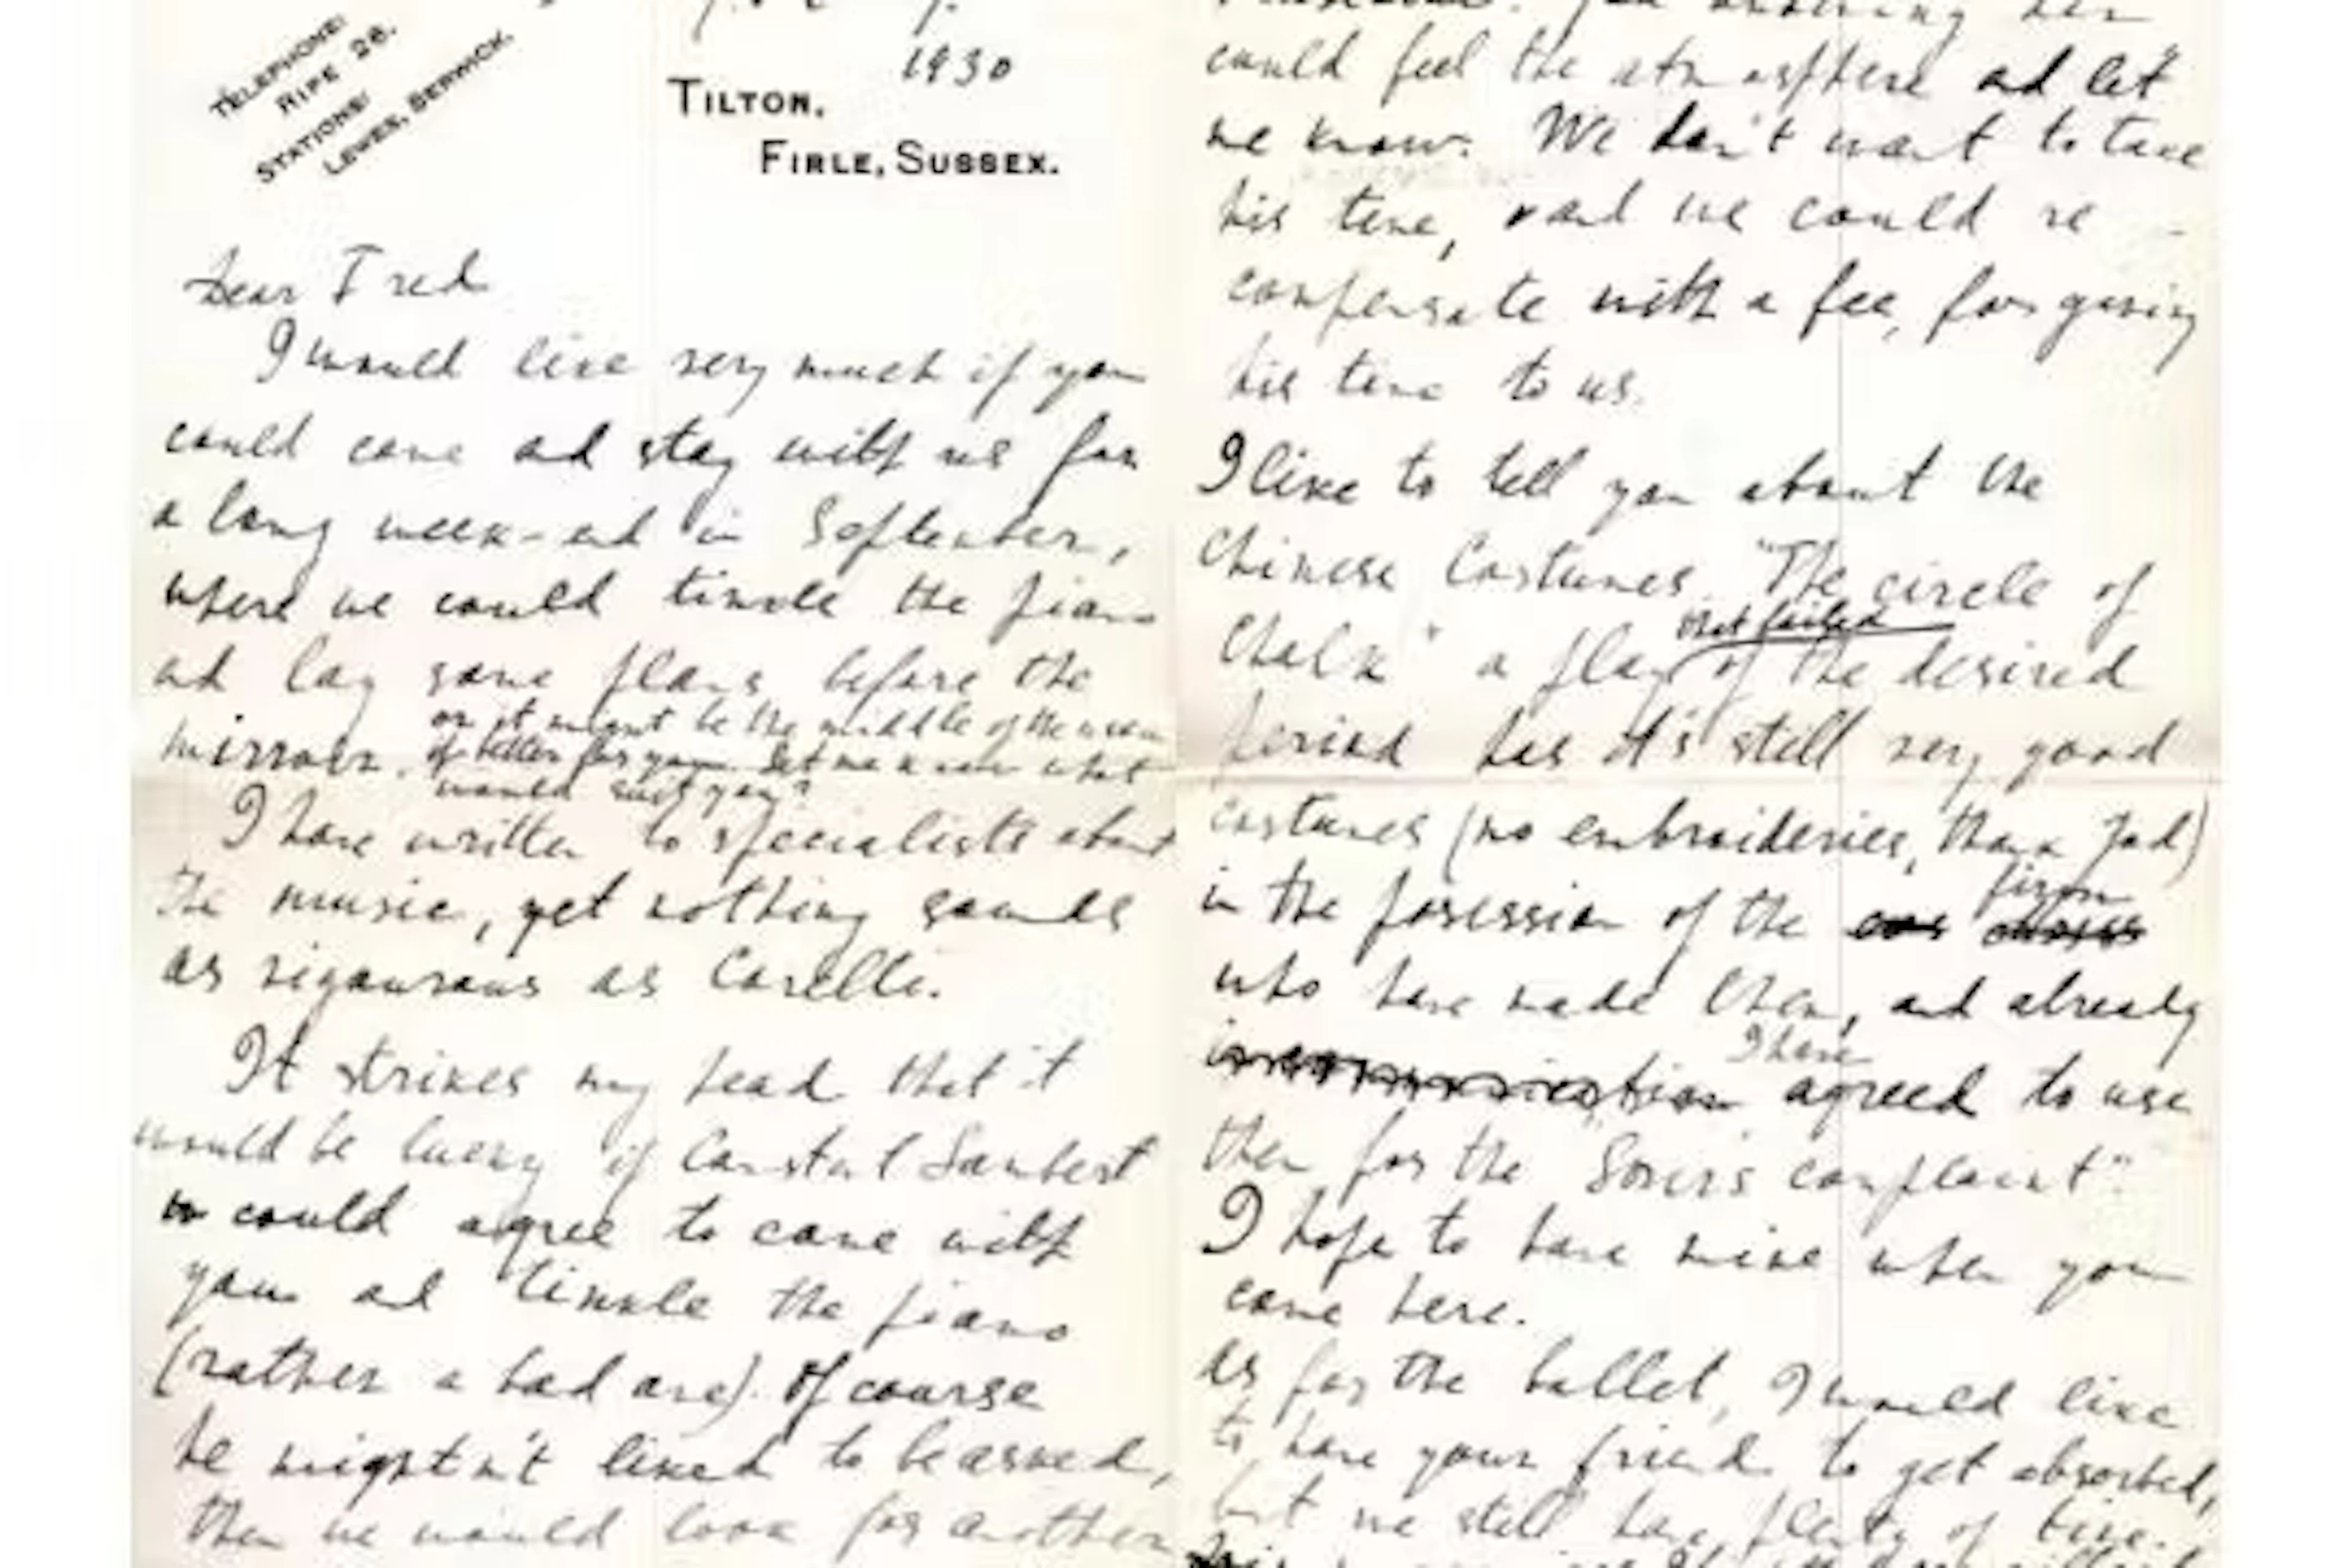 TELEPHONE
RIPE 26.
STATIONS:
LEWES, BERWICK.
1930
TILTON,
FIRLE, SUSSEX.
Dear Fred
I would like very much if you
could come and stay with us for
a long week-end in September,
where we could tinkle the piano
and lay some plans before the
mirror. or it might be the middle of the week
if better for you. let me know what
would suit you?
I have written to specialists about
the music, yet nothing sounds
as rigourous as Corelli.
It strikes my head that it
would be lucky if Constant Lambert
could agree to come with
you and tinkle the piano
(rather a bad one). Of course
he mightn't liked to be asked,
then we would look for another
knowing her
could feel the atmosphere and let
me know. We don't want to take
his time, and we could re-
compensate with a fee, for giving
his time to us.
I like to tell you about the
Chinese Costumes. "The circle of
Chalk" a play that failed of the desired
period has it's still very good
costumes (no embroideries, thank God)
in the posession of the firm
who have made them, and already
I have agreed to use
them for the "Lover's complaint".
I hope to have mine when you
come here.
As for the ballet, I would like
to have your friend to get absorbed,
but we still have plenty of time.